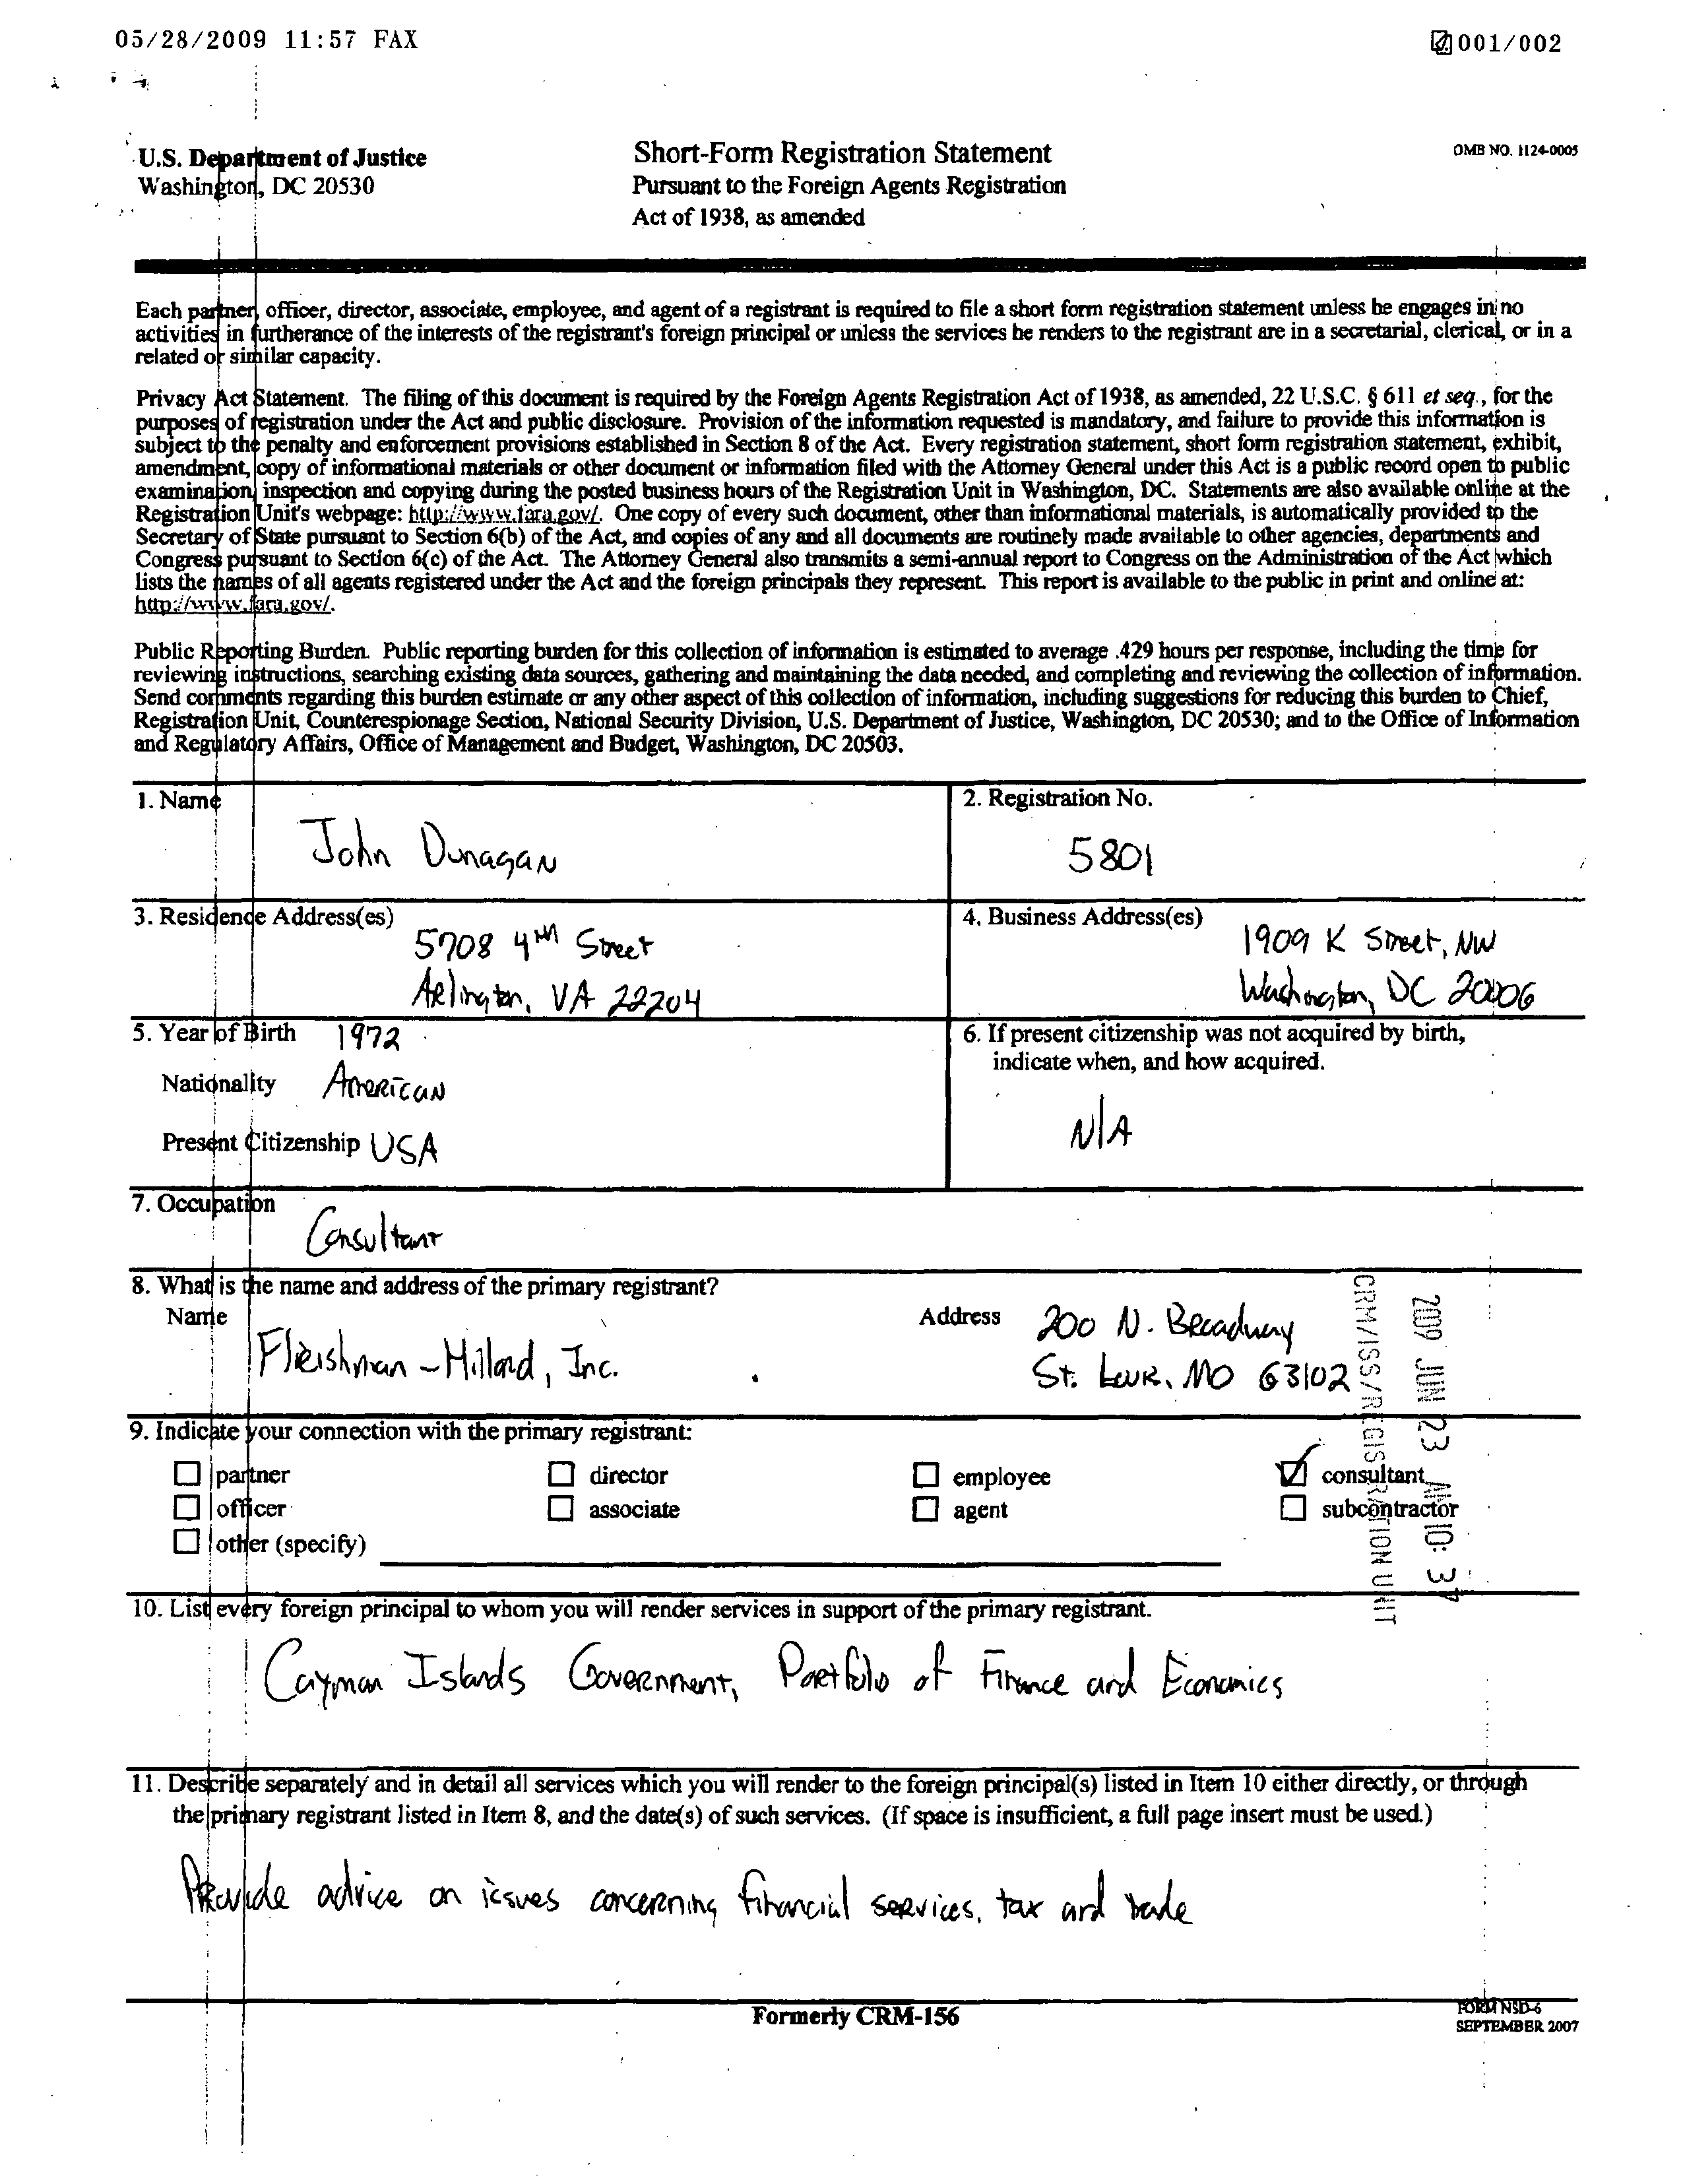 05/28/2009 11:57 FAX
001/002
U.S. Department of Justice
Washington, DC 20530
Short-Form Registration Statement
Pursuant to the Foreign Agents Registration
Act of 1938, as amended
OMB NO. 1124-0005
Each partner, officer, director, associate, employee, and agent of a registrant is required to file a short form registration statement unless he engages in no
activities in furtherance of the interests of the registrant's foreign principal or unless the services he renders to the registrant are in a secretarial, clerical, or in a
related or similar capacity.
Privacy Act Statement. The filing of this document is required by the Foreign Agents Registration Act of 1938, as amended, 22 U.S.C. § 611 et seq., for the
purposes of registration under the Act and public disclosure. Provision of the information requested is mandatory, and failure to provide this information is
subject to the penalty and enforcement provisions established in Section 8 of the Act. Every registration statement, short form registration statement, exhibit,
amendment, copy of informational materials or other document or information filed with the Attorney General under this Act is a public record open to public
examination, inspection and copying during the posted business hours of the Registration Unit in Washington, DC. Statements are also available online at the
Registration Unit's webpage: http://www.fara.gov/. One copy of every such document, other than informational materials, is automatically provided to the
Secretary of State pursuant to Section 6(b) of the Act, and copies of any and all documents are routinely made available to other agencies, departments and
Congress pursuant to Section 6(c) of the Act. The Attorney General also transmits a semi-annual report to Congress on the Administration of the Act which
lists the names of all agents registered under the Act and the foreign principals they represent. This report is available to the public in print and online at:
http://www.fara.gov/.
Public Reporting Burden. Public reporting burden for this collection of information is estimated to average .429 hours per response, including the time for
reviewing instructions, searching existing data sources, gathering and maintaining the data needed, and completing and reviewing the collection of information.
Send comments regarding this burden estimate or any other aspect of this collection of information, including suggestions for reducing this burden to Chief,
Registration Unit, Counterespionage Section, National Security Division, U.S. Department of Justice, Washington, DC 20530; and to the Office of Information
and Regulatory Affairs, Office of Management and Budget, Washington, DC 20503.
1. Name
John Dunagan
2. Registration No.
5801
3. Residence Address(es)
5708 4th Street
Arlington, VA 22204
4. Business Address(es)
1909 K Street, NW
Washington, DC 20006
5. Year of Birth 1972
Nationality American
Present Citizenship USA
6. If present citizenship was not acquired by birth,
indicate when, and how acquired.
N/A
7. Occupation
Consultant
8. What is the name and address of the primary registrant?
Name
Fleishman-Hillard, Inc.
Address 200 N. Broadway
St. Louis, MO 63102
9. Indicate your connection with the primary registrant:
partner director employee consultant
officer associate agent subcontractor
other (specify)
2009 JUN 23 AM 10: 37
CRM/ISS/REGISTRATION UNIT
10. List every foreign principal to whom you will render services in support of the primary registrant.
Cayman Islands Government, Portfolio of Finance and Economics
11. Describe separately and in detail all services which you will render to the foreign principal(s) listed in Item 10 either directly, or through
the primary registrant listed in Item 8, and the date(s) of such services. (If space is insufficient, a full page insert must be used.)
Provide advice on issues concerning financial services, tax and trade
Formerly CRM-156
FORM NSD-6
SEPTEMBER 2007